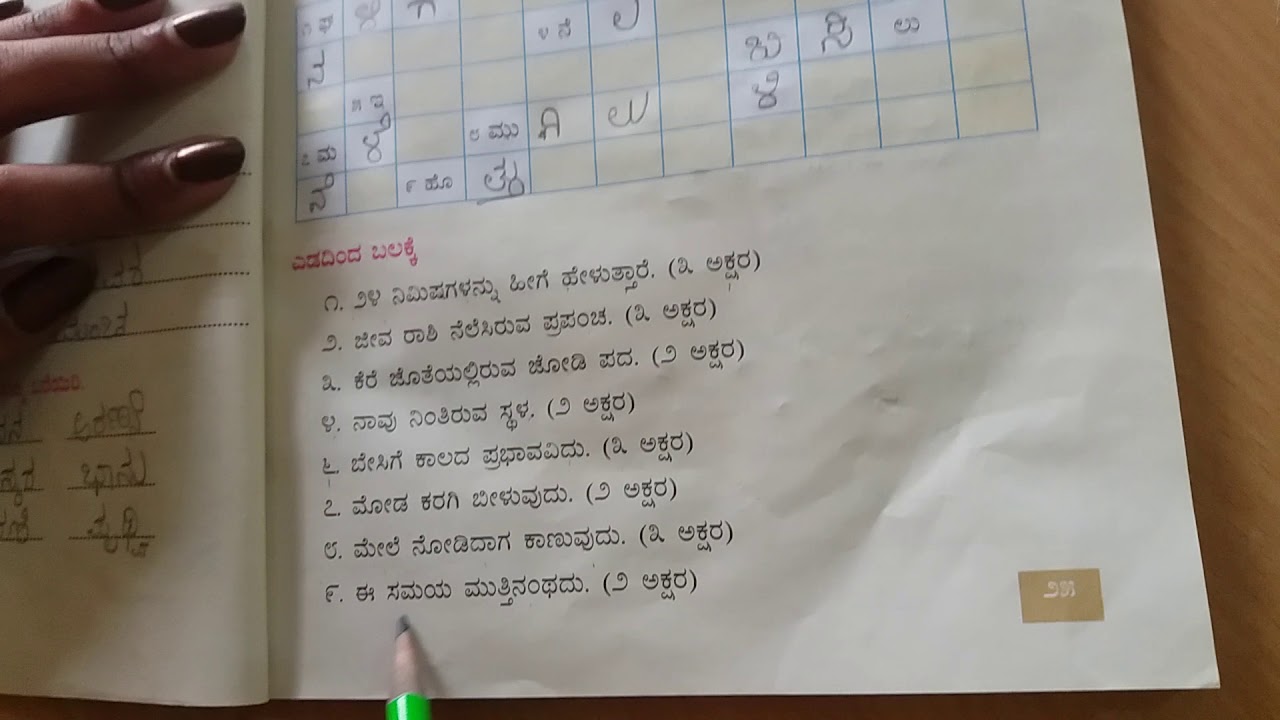 ೪ ನೆ ಲ
ಬಿ ಸಿ ಲು
ಳೆ
೮ ಮು ಗಿ ಲು
೭ ಮ ಳೆ
೯ ಹೊ ತ್ತು
ಎಡದಿಂದ ಬಲಕ್ಕೆ
೧. ೨೪ ನಿಮಿಷಗಳನ್ನು ಹೀಗೆ ಹೇಳುತ್ತಾರೆ. (೩ ಅಕ್ಷರ)
೨. ಜೀವ ರಾಶಿ ನೆಲೆಸಿರುವ ಪ್ರಪಂಚ. (೩ ಅಕ್ಷರ)
೩. ಕೆರೆ ಜೊತೆಯಲ್ಲಿರುವ ಜೋಡಿ ಪದ. (೨ ಅಕ್ಷರ)
೪. ನಾವು ನಿಂತಿರುವ ಸ್ಥಳ. (೨ ಅಕ್ಷರ)
೬. ಬೇಸಿಗೆ ಕಾಲದ ಪ್ರಭಾವವಿದು. (೩ ಅಕ್ಷರ)
೭. ಮೋಡ ಕರಗಿ ಬೀಳುವುದು. (೨ ಅಕ್ಷರ)
೮. ಮೇಲೆ ನೋಡಿದಾಗ ಕಾಣುವುದು. (೩ ಅಕ್ಷರ)
೯. ಈ ಸಮಯ ಮುತ್ತಿನಂಥದು. (೨ ಅಕ್ಷರ)
ಭಾನು
ಪೃಥ್ವಿ
೨೫